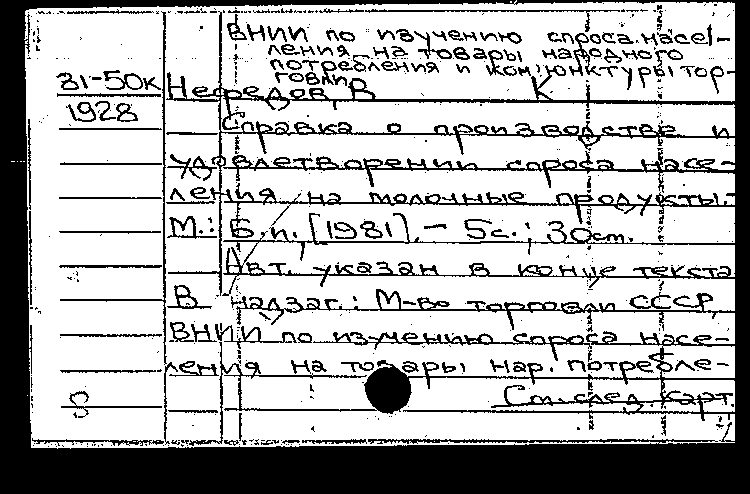 ВНИИ по изучению спроса насе-
ления на товары народного
потребления и конъюнктуры тор-
говли
81-50к Нефедов, В К
1928
Справка о производстве и
удовлетворении спроса насе-
ления на молочные продукты.-
М.: Б.и., [1981]. - 5с.; 30см.
Авт. указан в конце текста
В надзаг.: М-во торговли СССР,
ВНИИ по изучению спроса насе-
ления на товары нар. потребле-
8 См. след. карт.